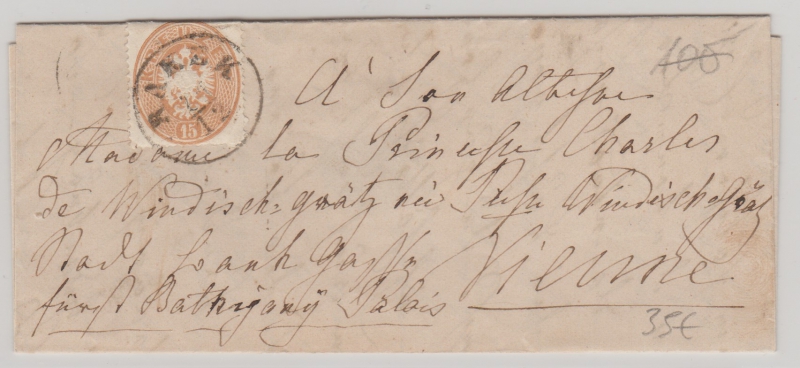 RAKEK
15
105
A' Son Altesse
Madame la Princesse Charles
de Windisch-grätz née Psse Windischgrätz
Stadt Bank Gasse
fürst Bathyany Palais
Vienne
35€